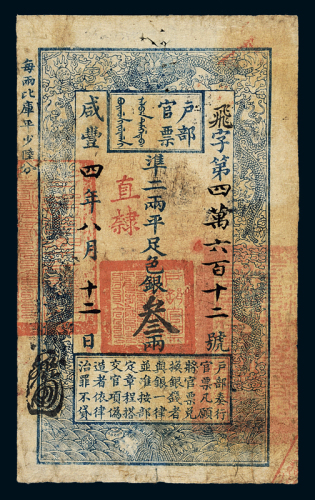 戶部
官票
飛字第四萬六百十二號
準二兩平足色銀叁兩
直隸
咸豐四年八月十二日
每兩比庫平少陸分
戶部奏行
官票凡願
將官票兌
換銀錢者
與銀一律
並准按部
定章程搭
交官項偽
造者依律
治罪不貸